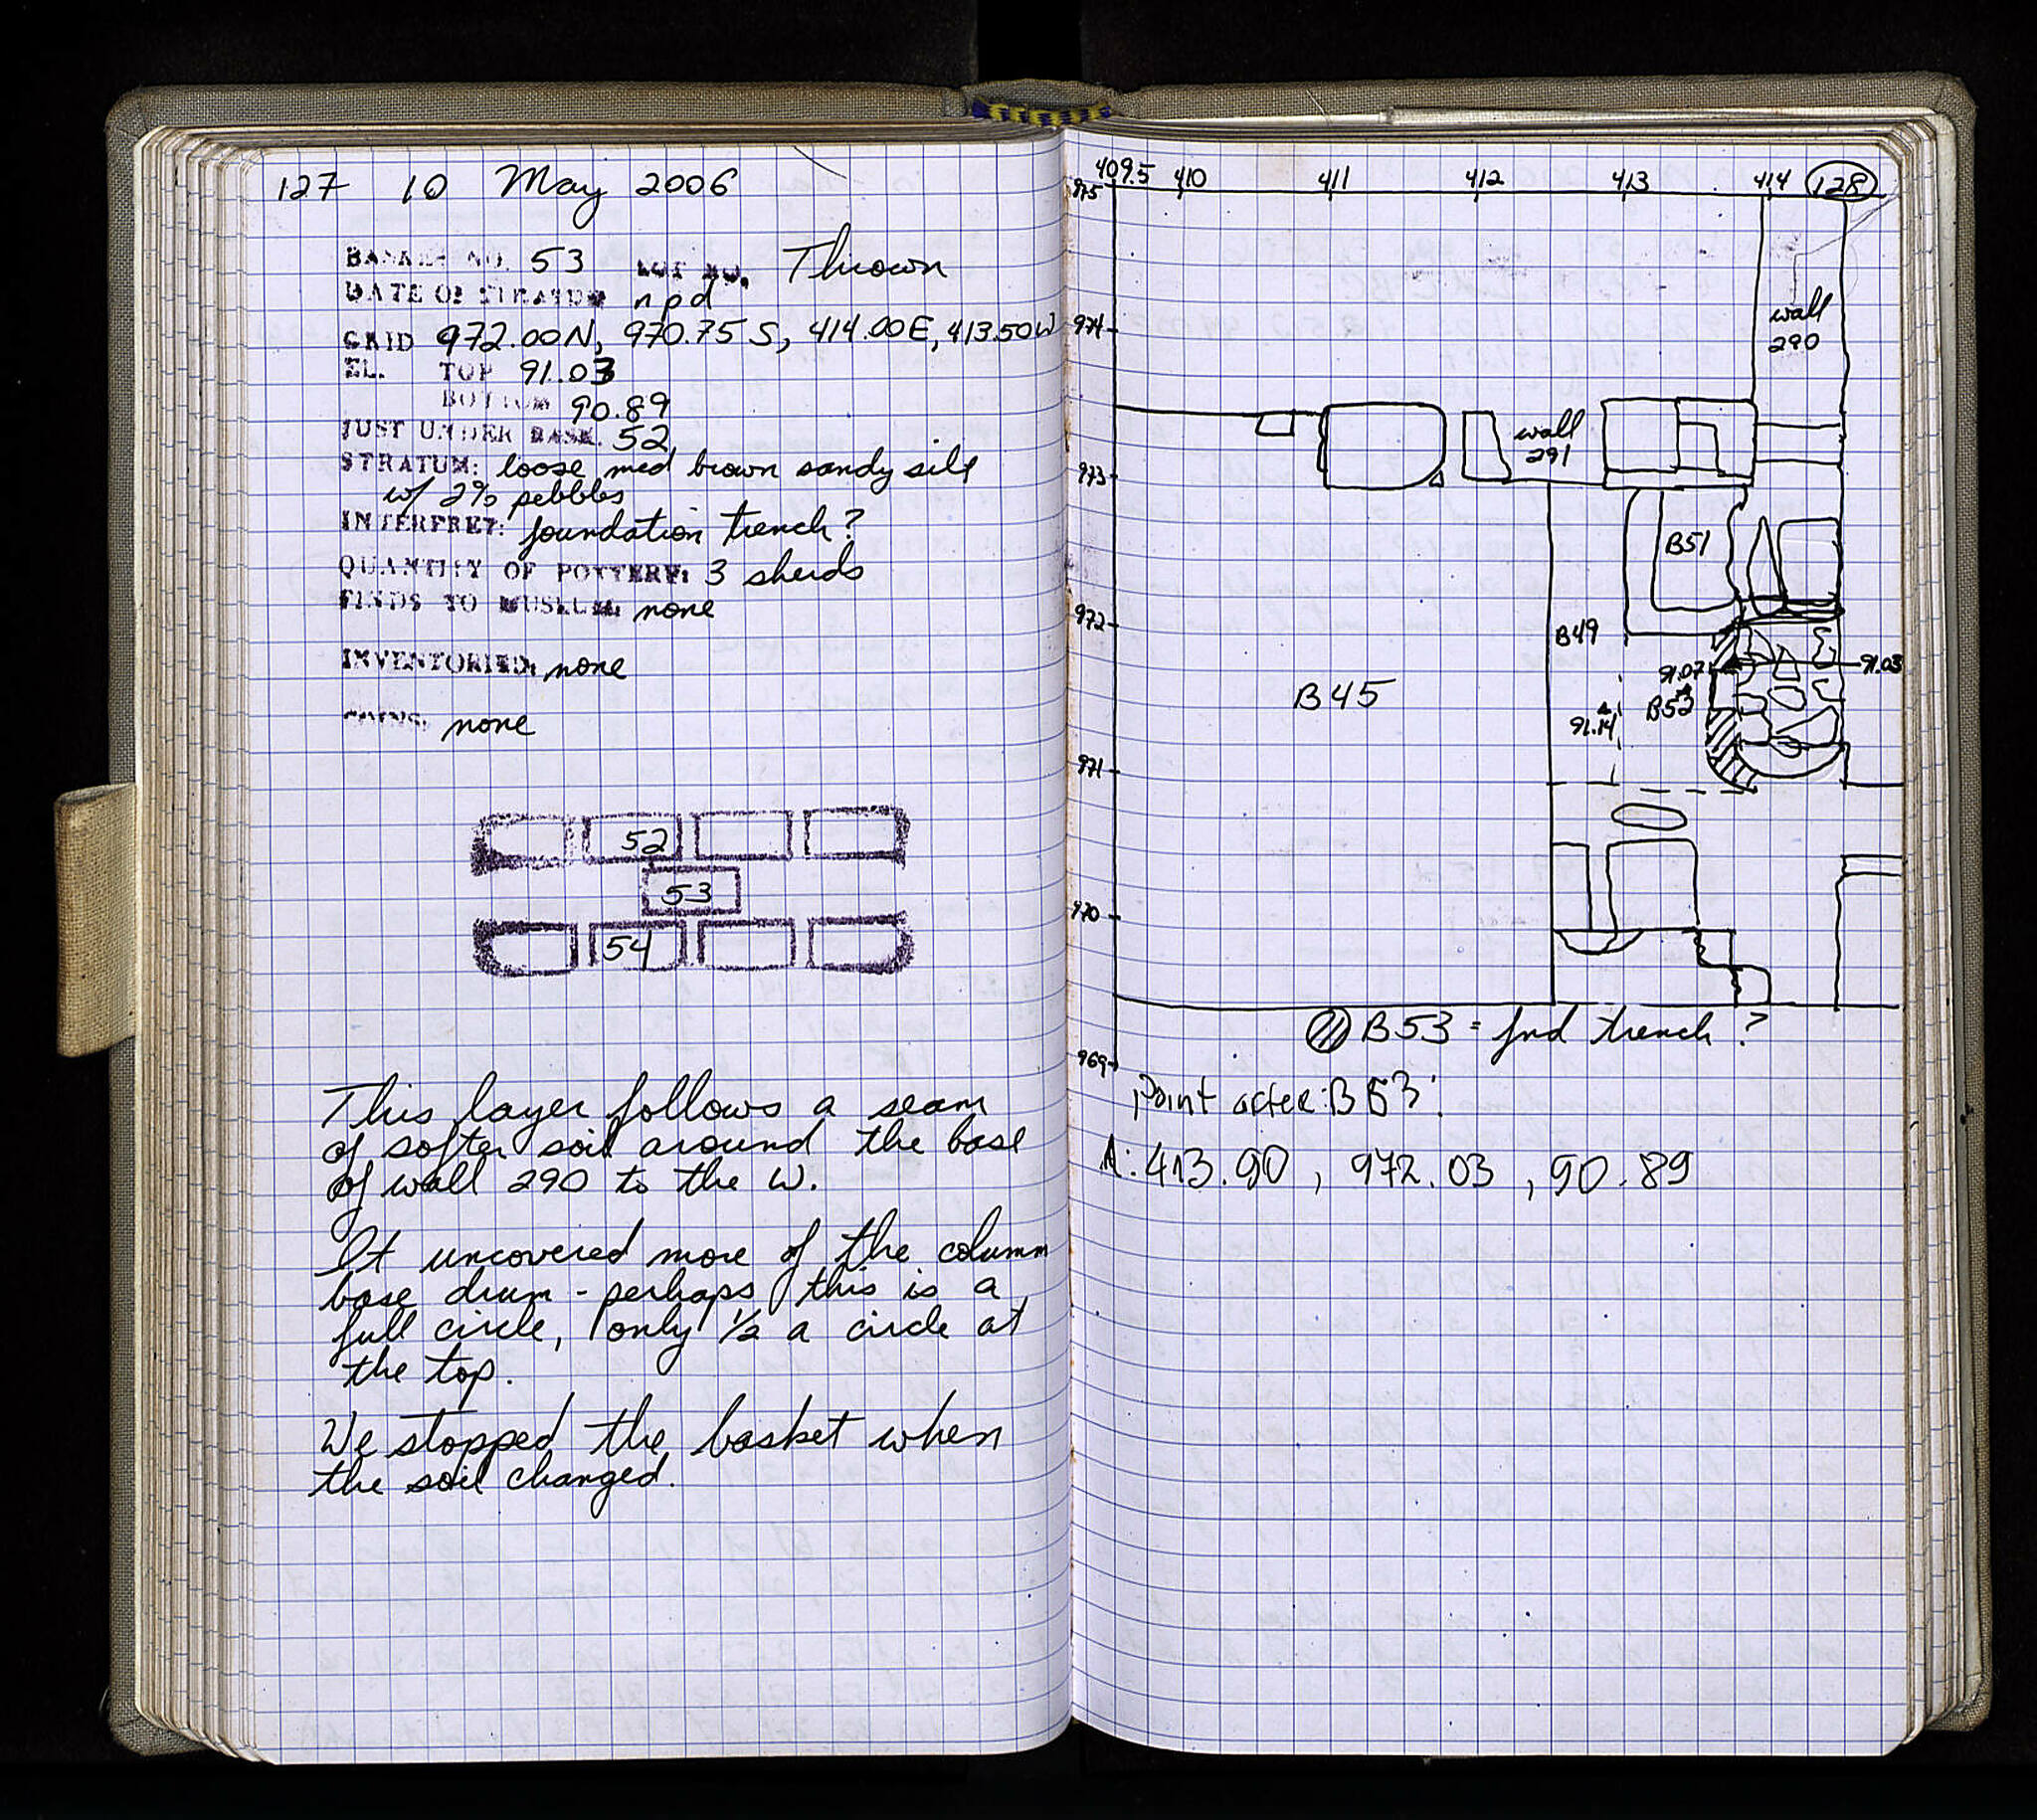 127 10 May 2006
BASKET NO. 53 LOT NO. Thrown
DATE OF STRATUM npd
GRID 972.00N, 970.75 S, 414.00E, 413.50W
EL. TOP 91.03
BOTTOM 90.89
JUST UNDER BASK. 52
STRATUM: loose med brown sandy silt
w/ 2% pebbles
INTERPRET: foundation trench?
QUANTITY OF POTTERY: 3 sherds
FINDS TO MUSEUM: none
INVENTORIED: none
COINS: none
52
53
54
This layer follows a seam
of softer soil around the base
of wall 290 to the W.
It uncovered more of the column
base drum - perhaps this is a
full circle, only 1/2 a circle at
the top.
We stopped the basket when
the soil changed.
409.5 410 411 412 413 414 128
975
wall
290
974
wall
291
973
B51
972
B49
91.07
91.03
B45
B52
91.14
971
970
B53 = fnd trench ?
969
Point after: B53:
A: 413.90, 972.03, 90.89